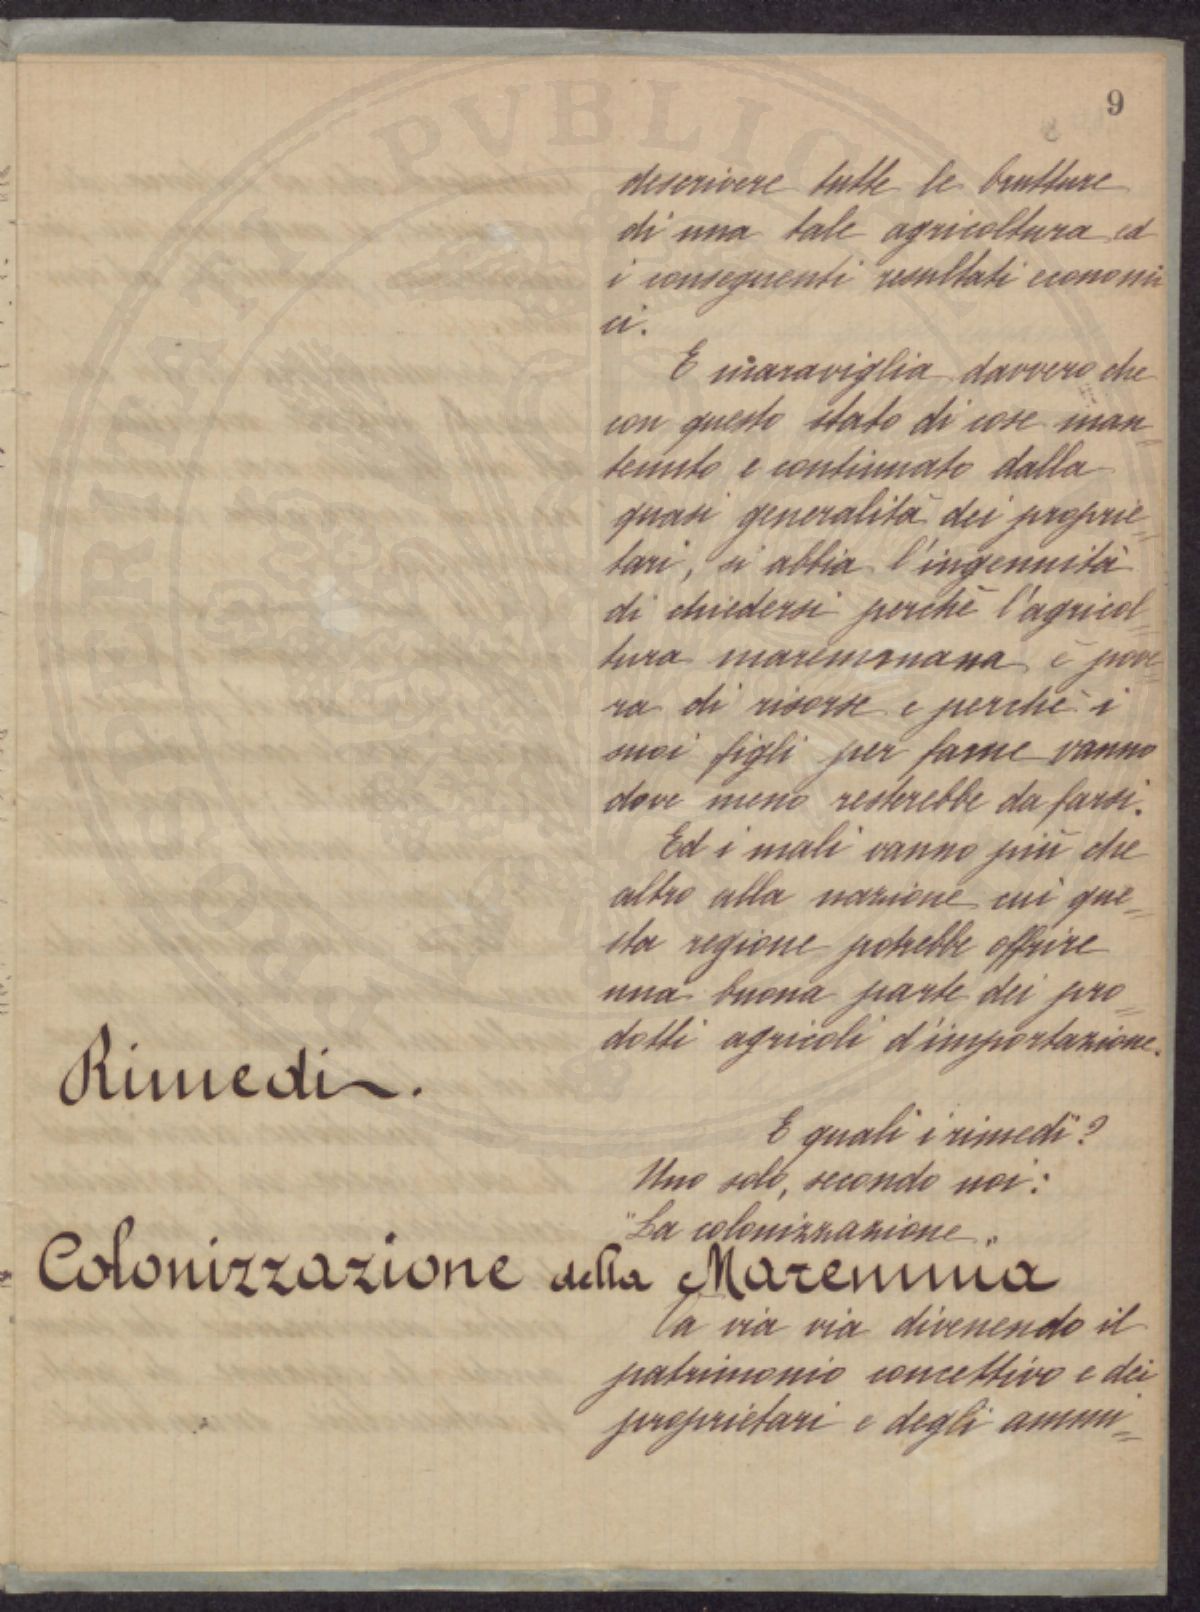 9
descrivere tutte le brutture
di una tale agricoltura ed
i conseguenti resultati economi
ci.
E maraviglia davvero che
con questo stato di cose man=
tenuto e continuato dalla
quasi generalità dei proprie=
tari, si abbia l'ingenuità
di chiedersi perchè l'agricol=
tura maremmana è pove=
ra di risorse e perchè i
suoi figli per fame vanno
dove meno resterebbe da farsi.
Ed i mali vanno più che
altro alla nazione cui que=
sta regione potrebbe offrire
una buona parte dei pro=
dotti agricoli d'importazione.
Rimedi.
E quali i rimedî?
Uno solo, secondo noi:
"La colonizzazione„
Colonizzazione della Maremma
Va via via divenendo il
patrimonio concettivo e dei
proprietari e degli ammi=